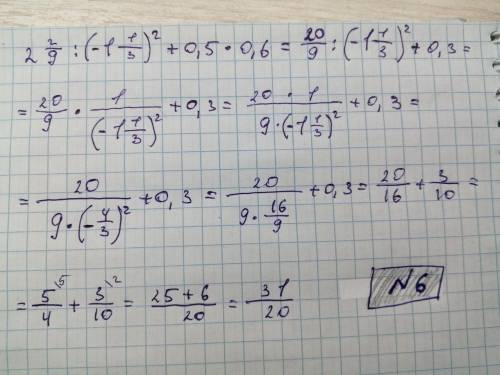 2 2/9 : (-1 1/3)² + 0,5 · 0,6 = 20/9 : (-1 1/3)² + 0,3 =
= 20/9 · 1/(-1 1/3)² + 0,3 = 20 · 1/9 · (-1 1/3)² + 0,3 =
= 20/9 · (-4/3)² + 0,3 = 20/9 · 16/9 + 0,3 = 20/16 + 3/10 =
= 5\5/4 + 3\2/10 = 25 + 6/20 = 31/20
N 6